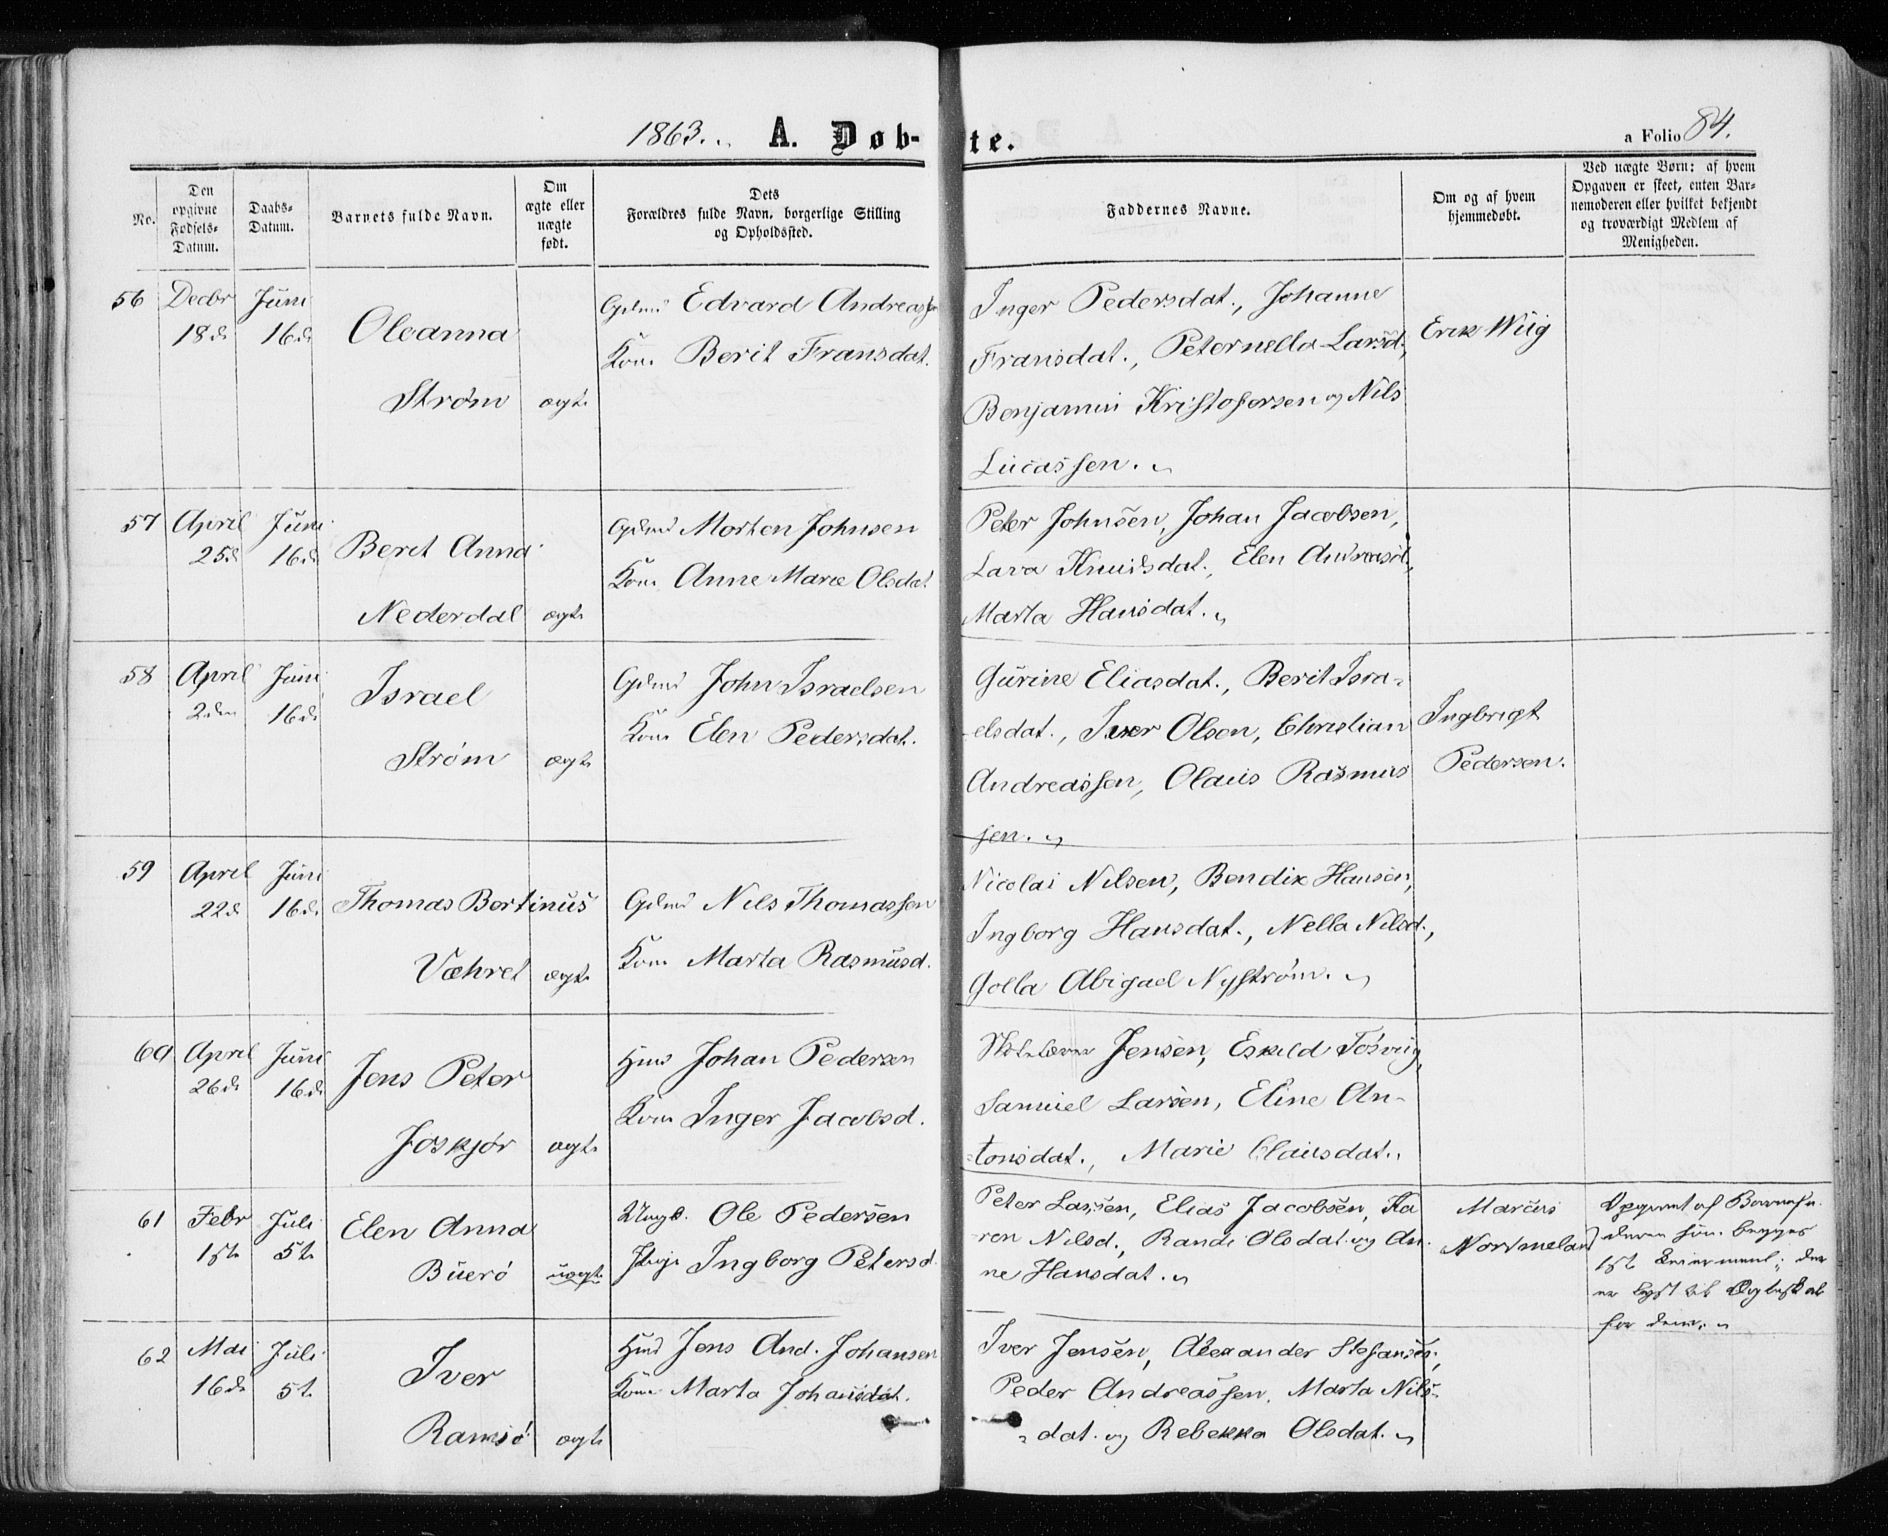 1863. A. Døb-te.
a Folio 84.
No.
Den opgivne Fødsels-Datum.
Daabs-Datum.
Barnets fulde Navn.
Om ægte eller uægte født.
Dets Forældres fulde Navn, borgerlige Stilling og Opholdssted.
Faddernes Navne.
Om og af hvem hjemmedøbt.
Ved uægte Børn: af hvem Opgaven er skeet, enten Barnemoderen eller hvilket bekjendt og troværdigt Medlem af Menigheden.
56 Decbr 18de Juni 16de
Oleanna
Strøm ægte
Gdmd Edvard Andreassen
Kone Berit Fransdat.
Inger Pedersdat., Johanne
Fransdat., Peternella Larsd.,
Benjamin Kristofersen og Nils
Lucassen.
Erik Wiig
57 April 25de Juni 16de
Berit Anna
Nederdal ægte
Gdmd Morten Johnsen
Kone Anne Marie Olsdat.
Peter Johnsen, Johan Jacobsen,
Lava Knudsdat., Elen Andreasd.,
Marta Hansdat.
58 April 2den Juni 16de
Israel
Strøm ægte
Gdmd John Israelsen
Kone Elen Pedersdat.
Gurine Eliasdat., Berit Isra-
elsdat., Iver Olsen, Christian
Andreassen, Olaus Rasmus
sen.
Ingbrigt
Pedersen.
59 April 22de Juni 16de
Thomas Bertinus
Væhret ægte
Gdmd Nils Thomassen
Kone Marta Rasmusd.
Nicolai Nilsen, Bendix Hansen,
Ingborg Hansdat., Nella Nilsd.,
Golla Abigael Nystrøm.
60 April 26de Juni 16de
Jens Peter
Joskjør ægte
Hmd Johan Pedersen
Kone Inger Jacobsd.
Skolelærer Jensen, Eskild Tosvig,
Samuel Larsen, Eline An-
tonsdat., Marie Clausdat.
61 Febr 1ste Juli 5te
Elen Anna
Buerø uægte
Ungk. Ole Pedersen
Pige Ingborg Petersd.
Peter Larsen, Elias Jacobsen, Ka
ren Nilsd., Randi Olsdat. og An-
ne Hansdat.
Marcus
Nortmeland
af Barnefa-
deren begges
1ste Leiermaal; der
er lyst til Ægteskab
for dem.
62 Mai 16de Juli 5te
Iver
Ramsø ægte
Hmd Jens And. Johansen
Kone Marta Johansdat.
Iver Jensen, Alexander Stefansen,
Peder Andreassen, Marta Nils-
dat. og Rebekka Olsdat.